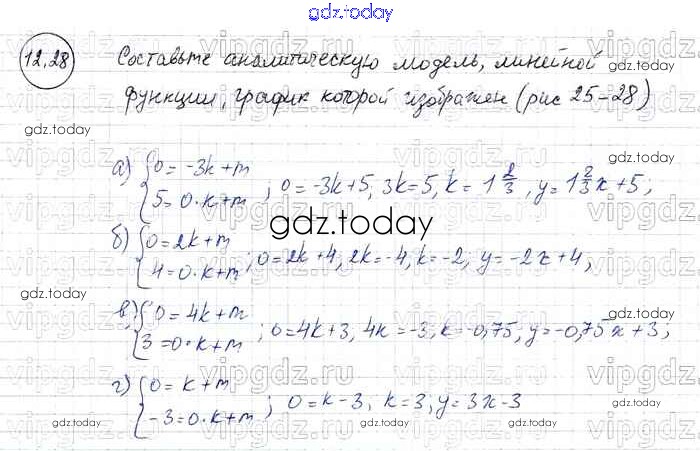 gdz.today
12.28 Составьте аналитическую модель, линейной
функции, график которой изображен (рис 25-28)
gdz.today
а) { 0 = -3k+m
5 = 0·k+m ; 0 = -3k+5, 3k=5, k = 1 2/3, y = 1 2/3 x + 5;
gdz.today
б) { 0 = 2k+m
4 = 0·k+m ; 0 = 2k+4, 2k=-4, k=-2, y = -2x+4;
gdz.today
в) { 0 = 4k+m
3 = 0·k+m ; 0 = 4k+3, 4k = -3, k = -0,75, y = -0,75x + 3;
gdz.today
г) { 0 = k+m
-3 = 0·k+m ; 0 = k-3, k=3, y = 3x-3
gdz.today
vipgdz